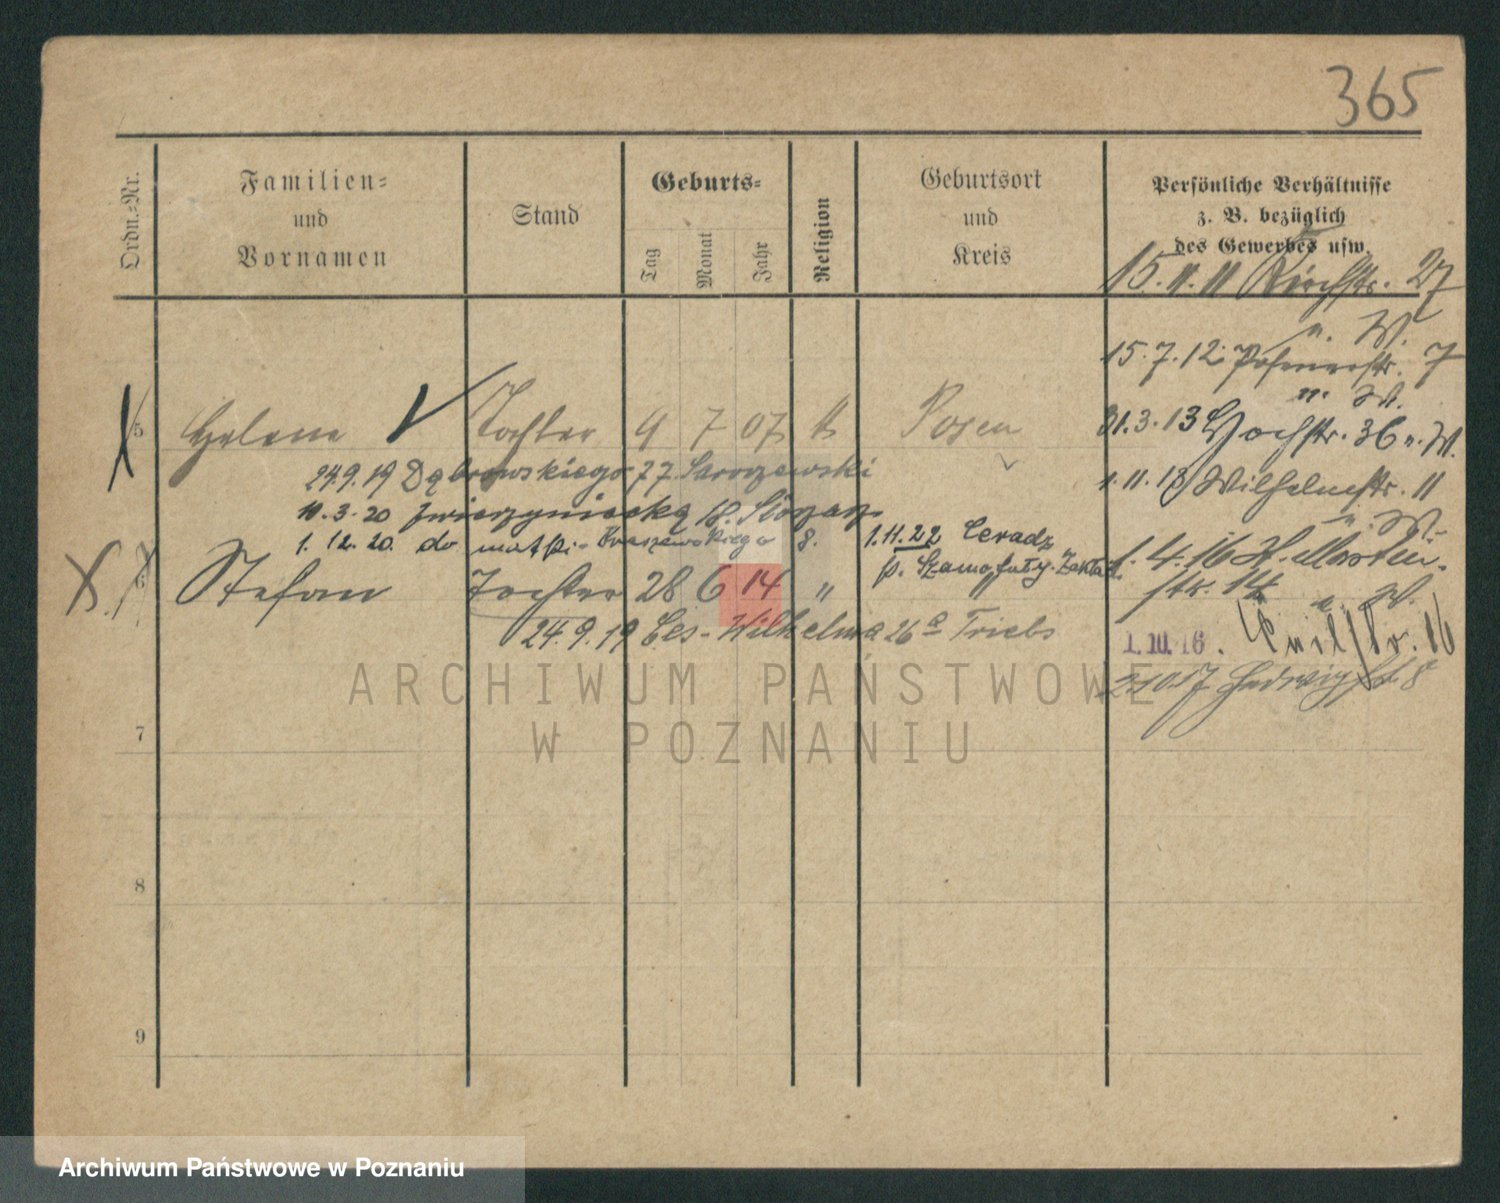 365
Ordn.-Nr.
Familien-
und
Vornamen
Stand
Geburts-
Tag
Monat
Jahr
Religion
Geburtsort
und
Kreis
Persönliche Verhältnisse
z. B. bezüglich
des Gewerbes usw.
15.11.11 Kirchstr. 27
n. W.
15.7.12 Posenerstr. 7
n. W.
5 Helene Tochter 9 7 07 k Posen
31.3.13 Hochstr. 36 n. W.
24.9.19 Dąbrowskiego 77
1.11.13 Wilhelmstr. 11
n. W.
11.3.20
1.12.20. do matki - Kraszewskiego 8.
1.11.22 Ceradz
p. Szamotuły
6 Stefan Tochter 28 6 14 "
1.4.16 St. Martin-
str. 14
n. W.
24.9.19 Ces-Wilhelma 26a
1.10.16.
16
21017 Hedwigstr 8
7
8
9
ARCHIWUM PAŃSTWOWE
W POZNANIU
Archiwum Państwowe w Poznaniu